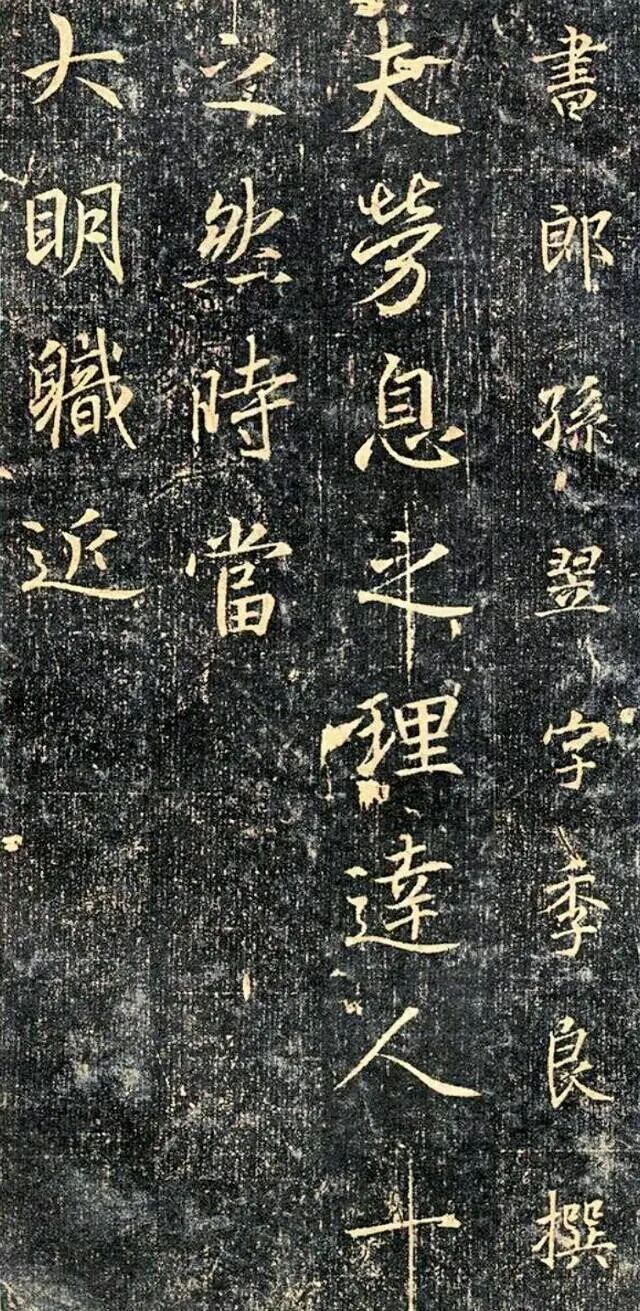 書郎孫翌字季良撰
夫勞息之理達人十
之然時當
大明職近